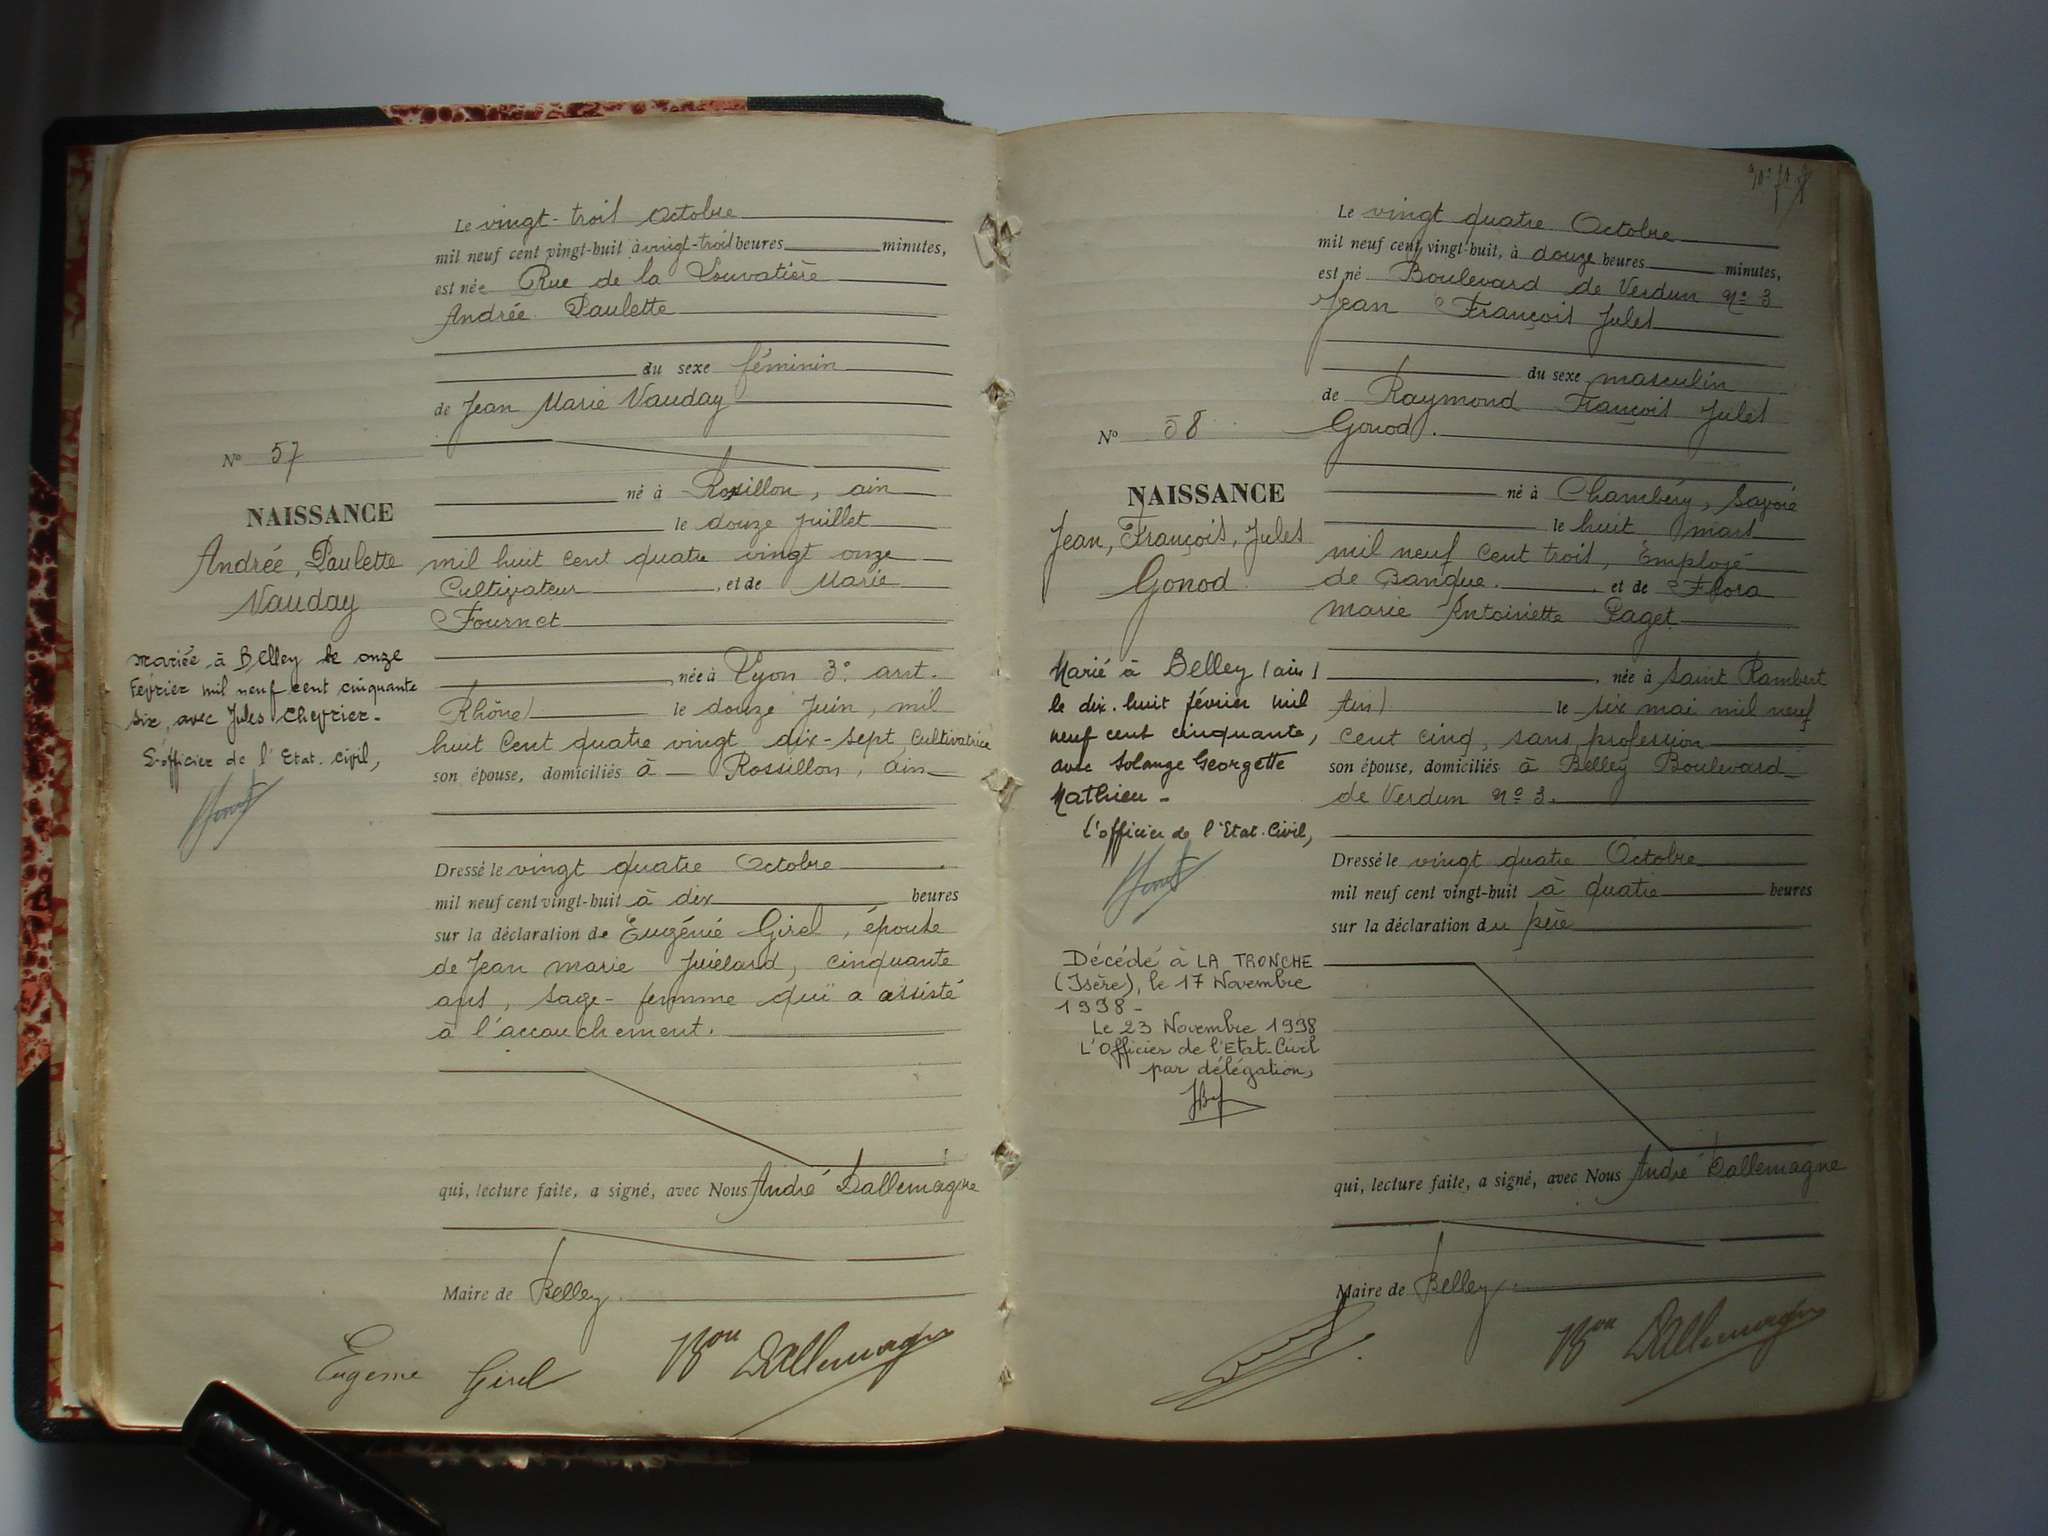 Le vingt-trois Octobre
mil neuf cent vingt-huit à vingt-trois heures minutes,
est née Rue de la Louvatière
Andrée Paulette
du sexe féminin
de Jean Marie Vauday
né à Rossillon, ain
le douze juillet
mil huit cent quatre vingt onze
Cultivateur, et de Marie
Fournet
, née à Lyon 3e arrt.
Rhône) le douze Juin, mil
huit cent quatre vingt dix-sept, Cultivatrice
son épouse, domiciliés à Rossillon, ain
Dressé le vingt quatre Octobre
mil neuf cent vingt-huit à dix heures
sur la déclaration de Eugénie Girel, épouse
de Jean marie, cinquante
ans, sage-femme qui a assisté
à l'accouchement.
qui, lecture faite, a signé, avec Nous André Dallemagne
Maire de Belley
Eugenie Girel Bon Dallemagne
No 57
NAISSANCE
Andrée, Paulette
Vauday
Mariée à Belley le onze
Février mil neuf cent cinquante
six, avec Jules Chevrier-
L'officier de l'Etat-civil,
Le vingt quatre Octobre
mil neuf cent vingt-huit, à douze heures minutes,
est né Boulevard de Verdun No 3
Jean François Jules
du sexe masculin
de Raymond François Jules
Gonod.
né à Chambéry, Savoie
le huit mars
mil neuf cent trois, Employé
de Banque, et de Flora
Marie Antoinette Paget
, née à Saint Rambert
Ain) le six mai mil neuf
cent cinq, sans profession
son épouse, domiciliés à Belley Boulevard
de Verdun No 3.
Dressé le vingt quatre Octobre
mil neuf cent vingt-huit à quatre heures
sur la déclaration du père
qui, lecture faite, a signé, avec Nous André Dallemagne
Maire de Belley
Bon Dallemagne
No 58
NAISSANCE
Jean, François, Jules
Gonod
Marié à Belley (ain)
le dix-huit février mil
neuf cent cinquante,
avec Solange Georgette
Mathieu -
L'officier de l'Etat-Civil,
Décédé à LA TRONCHE
(Isère), le 17 Novembre
1998-
Le 23 Novembre 1998
L'Officier de l'Etat-Civil
par délégation,